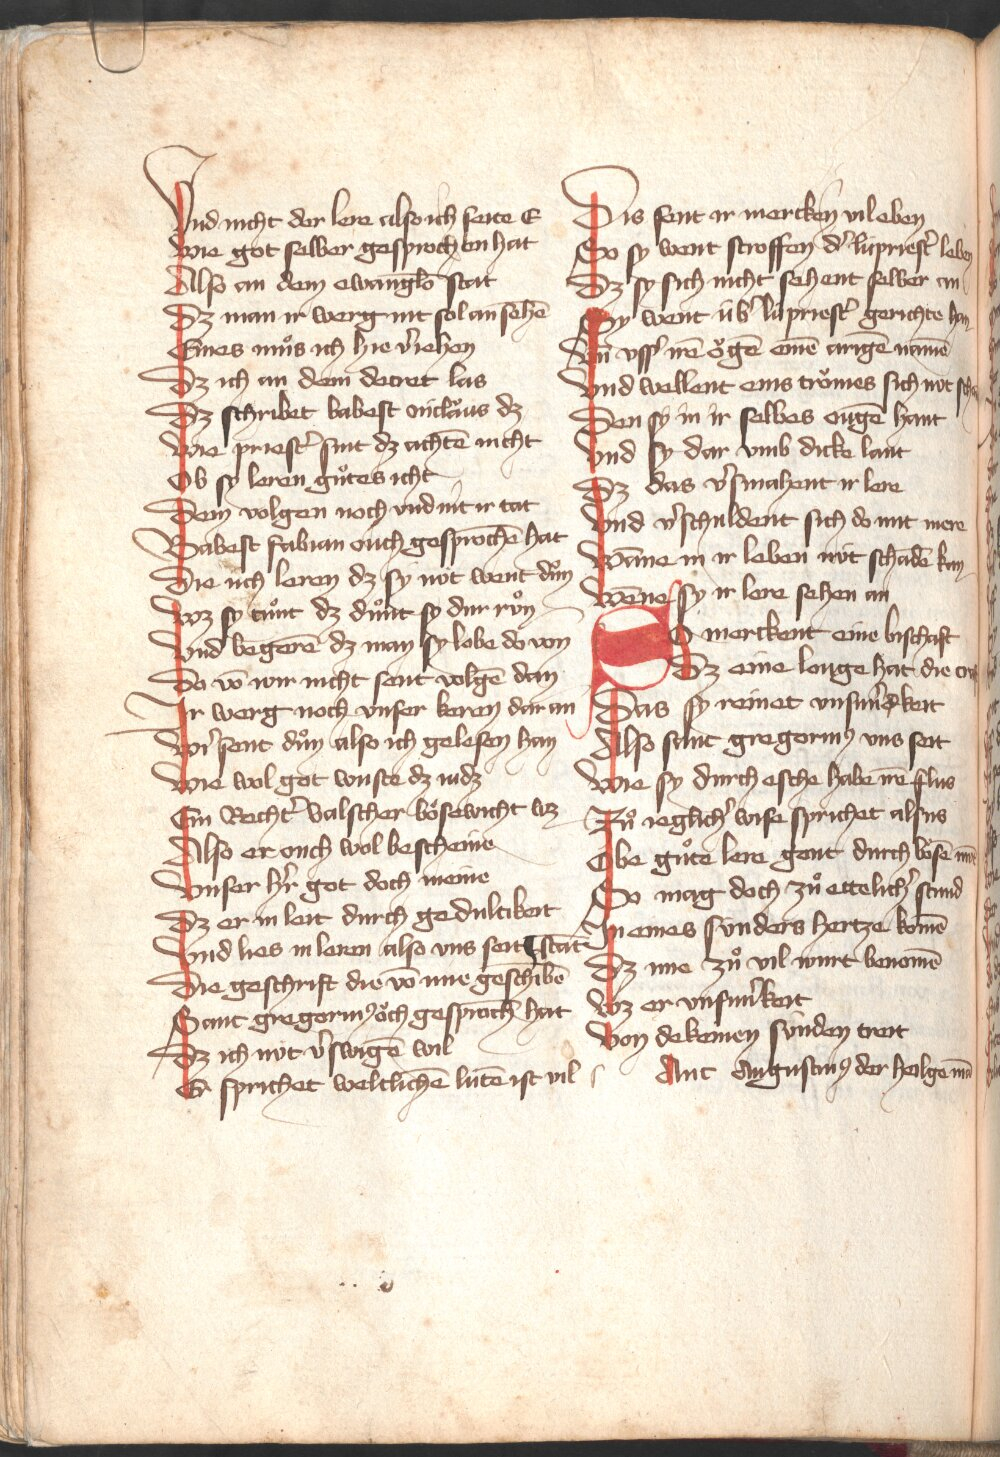 Vnd nicht der lere also ich seite E
Wie got selber gesprochen hat
Also an dem ewanglo stat
Dz man ir werg nit sol an sehē
Eines můs ich hie v'iehen
Dz ich an dem decret las
Dz schribet babest niclaus dz
Wie priest' sint dz achtē nicht
Ob sy leren gůtes icht
Dem volgen noch vnd nit ir tat
Babest fabian ouch gesprochē hat
Die uch leren dz sy nöt went důn
Wz sy tůnt dz důnt sy dur růn
Vnd begerē dz man sy lobe do von
Do vō wir nicht sent volgē dan
Ir werg noch vnser keren dar an
Wir sent důn also ich gelesen han
Wie wol got wuste dz iudz
Ein Recht' valscher bösewicht wz
Also er ouch wol bescheine
Vnser h'r got doch meine
Dz er in leit durch gedultikeit
Vnd lies in leren also vns seit stat
Die geschrift die vō ime geschibē
Sant gregori9 och gesprochē hat
Dz ich nöt v'swigē wil
Er sprichet weltlichē lütē ist vil
Dis sent ir mercken vil eben
So sy went stroffen d' lüpriest' leben
Dz sy sich nicht sehent selber an
Sy went üb' lüpriest' gerichte han
Vn̄ vss irē ögē einē argē namē
Vnd wellent eins trömes sich nöt
Den sy in ir selbes ougē hant
Vnd sy dar vmb dicke lant
Dz das v'smahent ir lere
Vnd v'schuldent sich do mit mere
Wāne in ir leben nöt schadē kan
Wēne sy ir lere sehen an
So merckent eine bischaft
Dz eine louge hat die
Das sy reinet vnsuv'keit
Also sant gregori9 vns seit
Wie sy durch esche habe irē flus
Zů ieglich' wise sprichet alsus
Obe gůte lere gent durch böse
So mag doch zů ettelich' stund
In eines sünders hertze komē
Dz ime zů vil wurt benomē
Wz er vnsuv'keit
Von dekeinen sünden treit
Ant Augustin9 der heilge mā